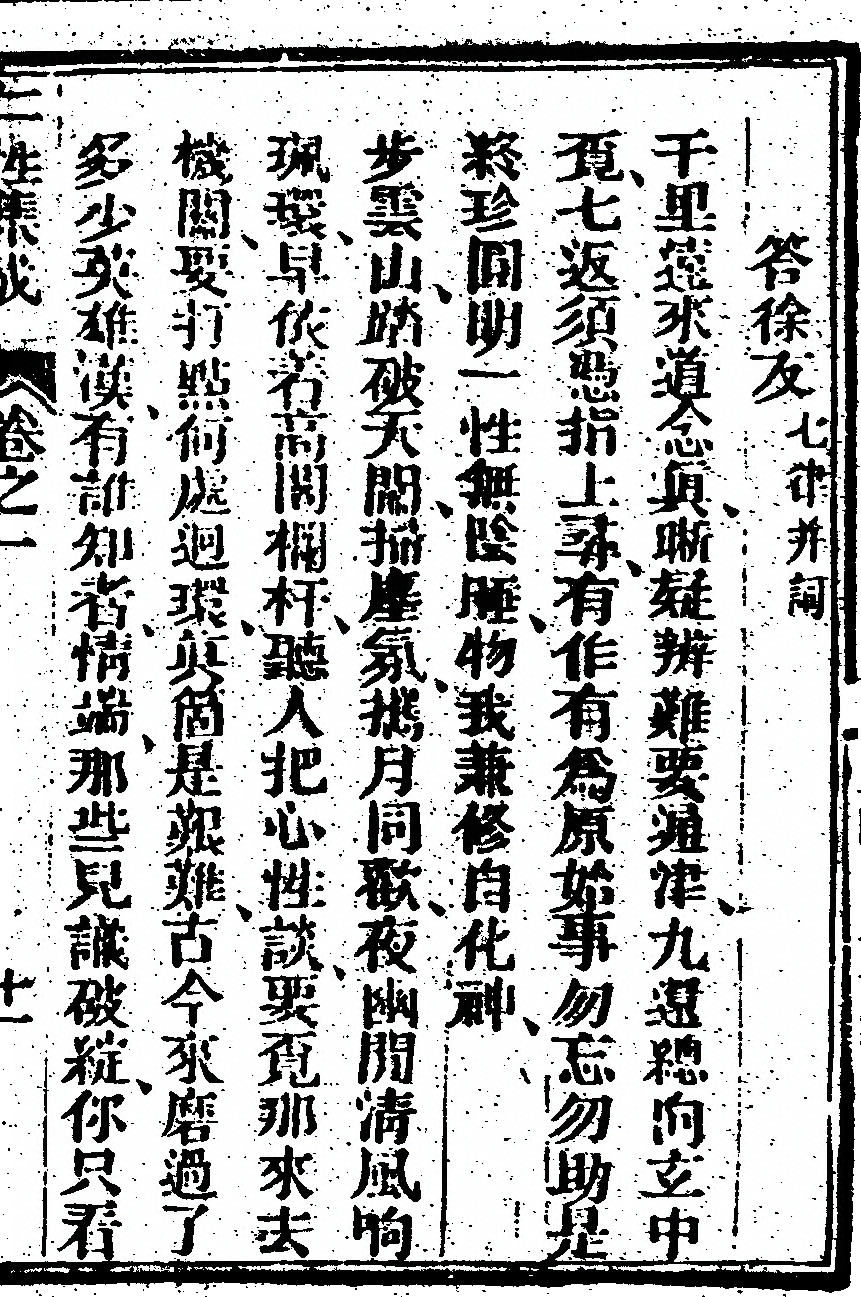 答徐友七律并詞
千里遠來道念真、晰疑辨難要通津、九還總向玄中
覓、七返須憑指上尋、有作有為原始事勿忘勿助是
終珍圓明一性無陰睡、物我兼修自化神、
步雲山、踏破天關、掃塵氛、攜月同歡、夜幽閒清風响
珮環、早依著高閣欄杆、聽人把心性談、要覓那來去
機關、要打點何處迴環、真箇是艱難、古今來磨過了
多少英雄漢、有誰知者、情端、那些兒識破綻、你只看
二性集成 卷之一 十一